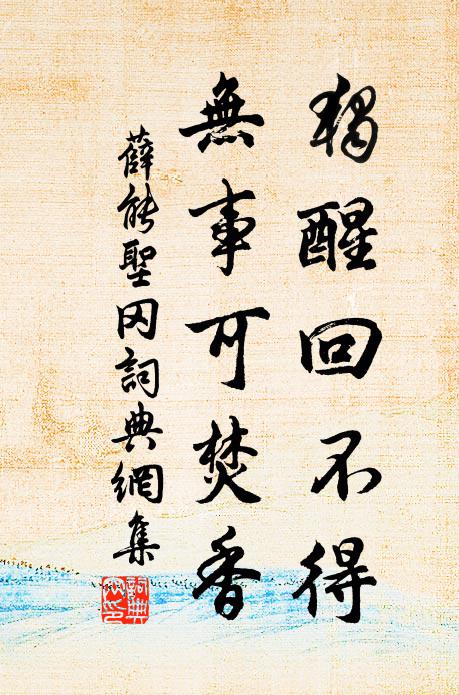 獨醒回不得
無事可焚香
薛能聖岡詞典網集